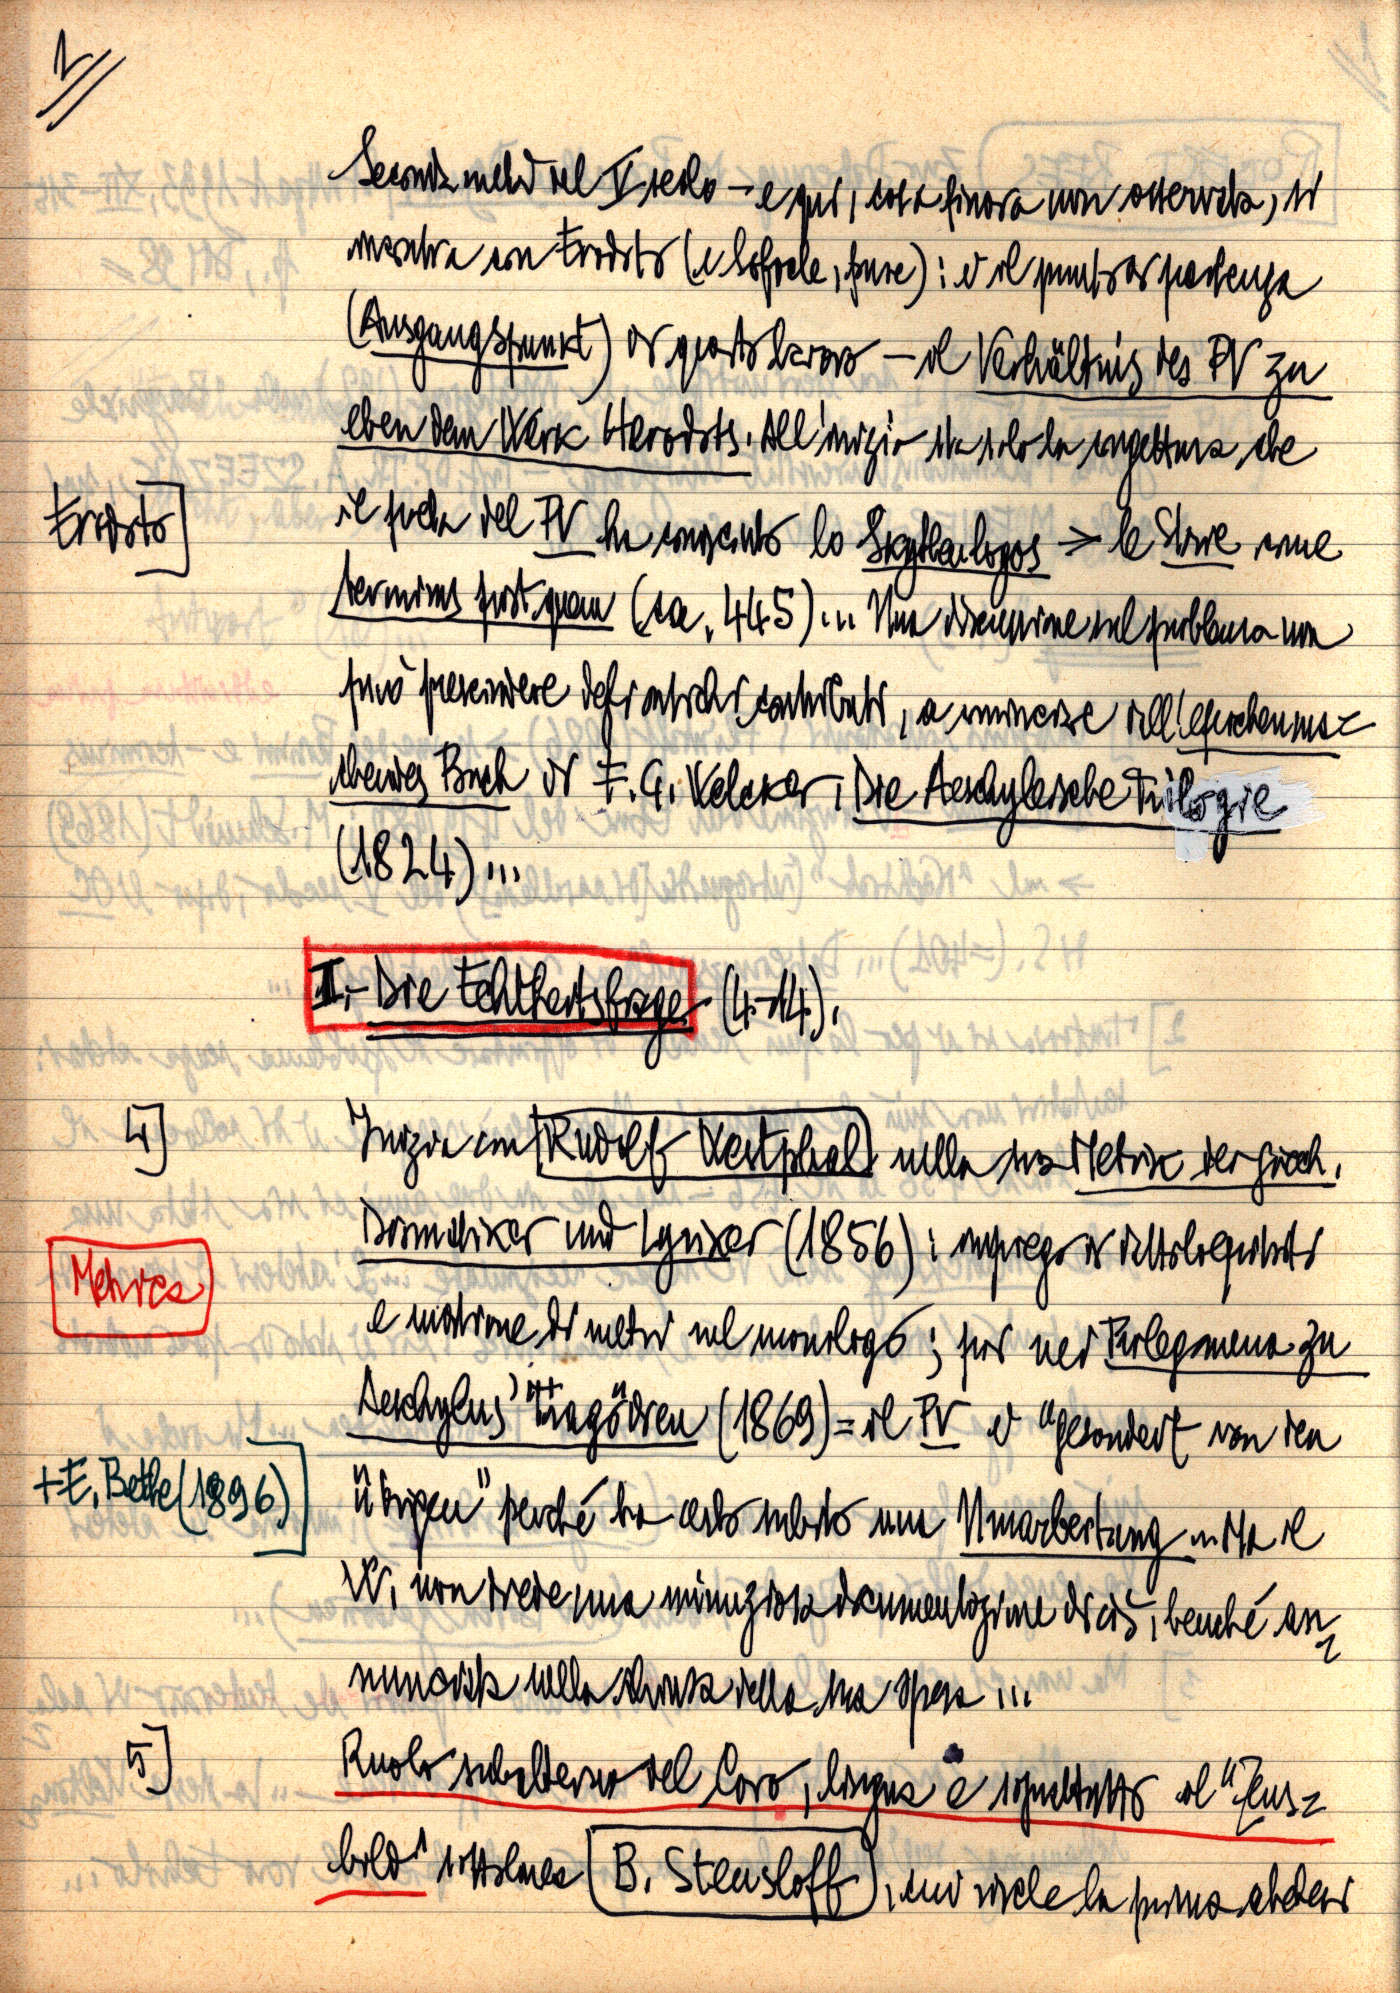 1
seconda metà del V secolo – e qui, cosa finora non osservata, si
incontra con Erodoto (e Sofocle, pure): è il punto di partenza
(Ausgangspunkt) di questo lavoro – il Verhältnis des PV zu
eben dem Werk Herodots. All'inizio sta solo la congettura che
Erodoto]
il poeta del PV ha conosciuto lo Skythenlogos → le Storie come
terminus post quem (ca. 445)... Una discussione sul problema non
può prescindere dagli antichi contributi, a cominciare dall'epochenma=
chendes Buch di F. G. Welcker, Die Aeschyleische Trilogie
(1824)...
I.- Die Echtheitsfrage (4-14).
4]
Inizia con Rudolf Westphal nella sua Metrik der griech.
Dramatiker und Lyriker (1856): impiego di
Metrica
e di metri nel monologo; poi nei Prolegomena zu
Aeschylus' Tragödien (1869) = il PV è "gesondert von den
+ E. Bethe (1896)]
übrigen" perché ha certo subito una Umarbeitung
W. non diede una minuziosa documentazione di ciò, benché an=
nunciata nella della sua opera...
5]
Ruolo subalterno del Coro, lingua e soprattutto il "Zeus=
bild" sottolinea B. Stensloff, cui risale la prima